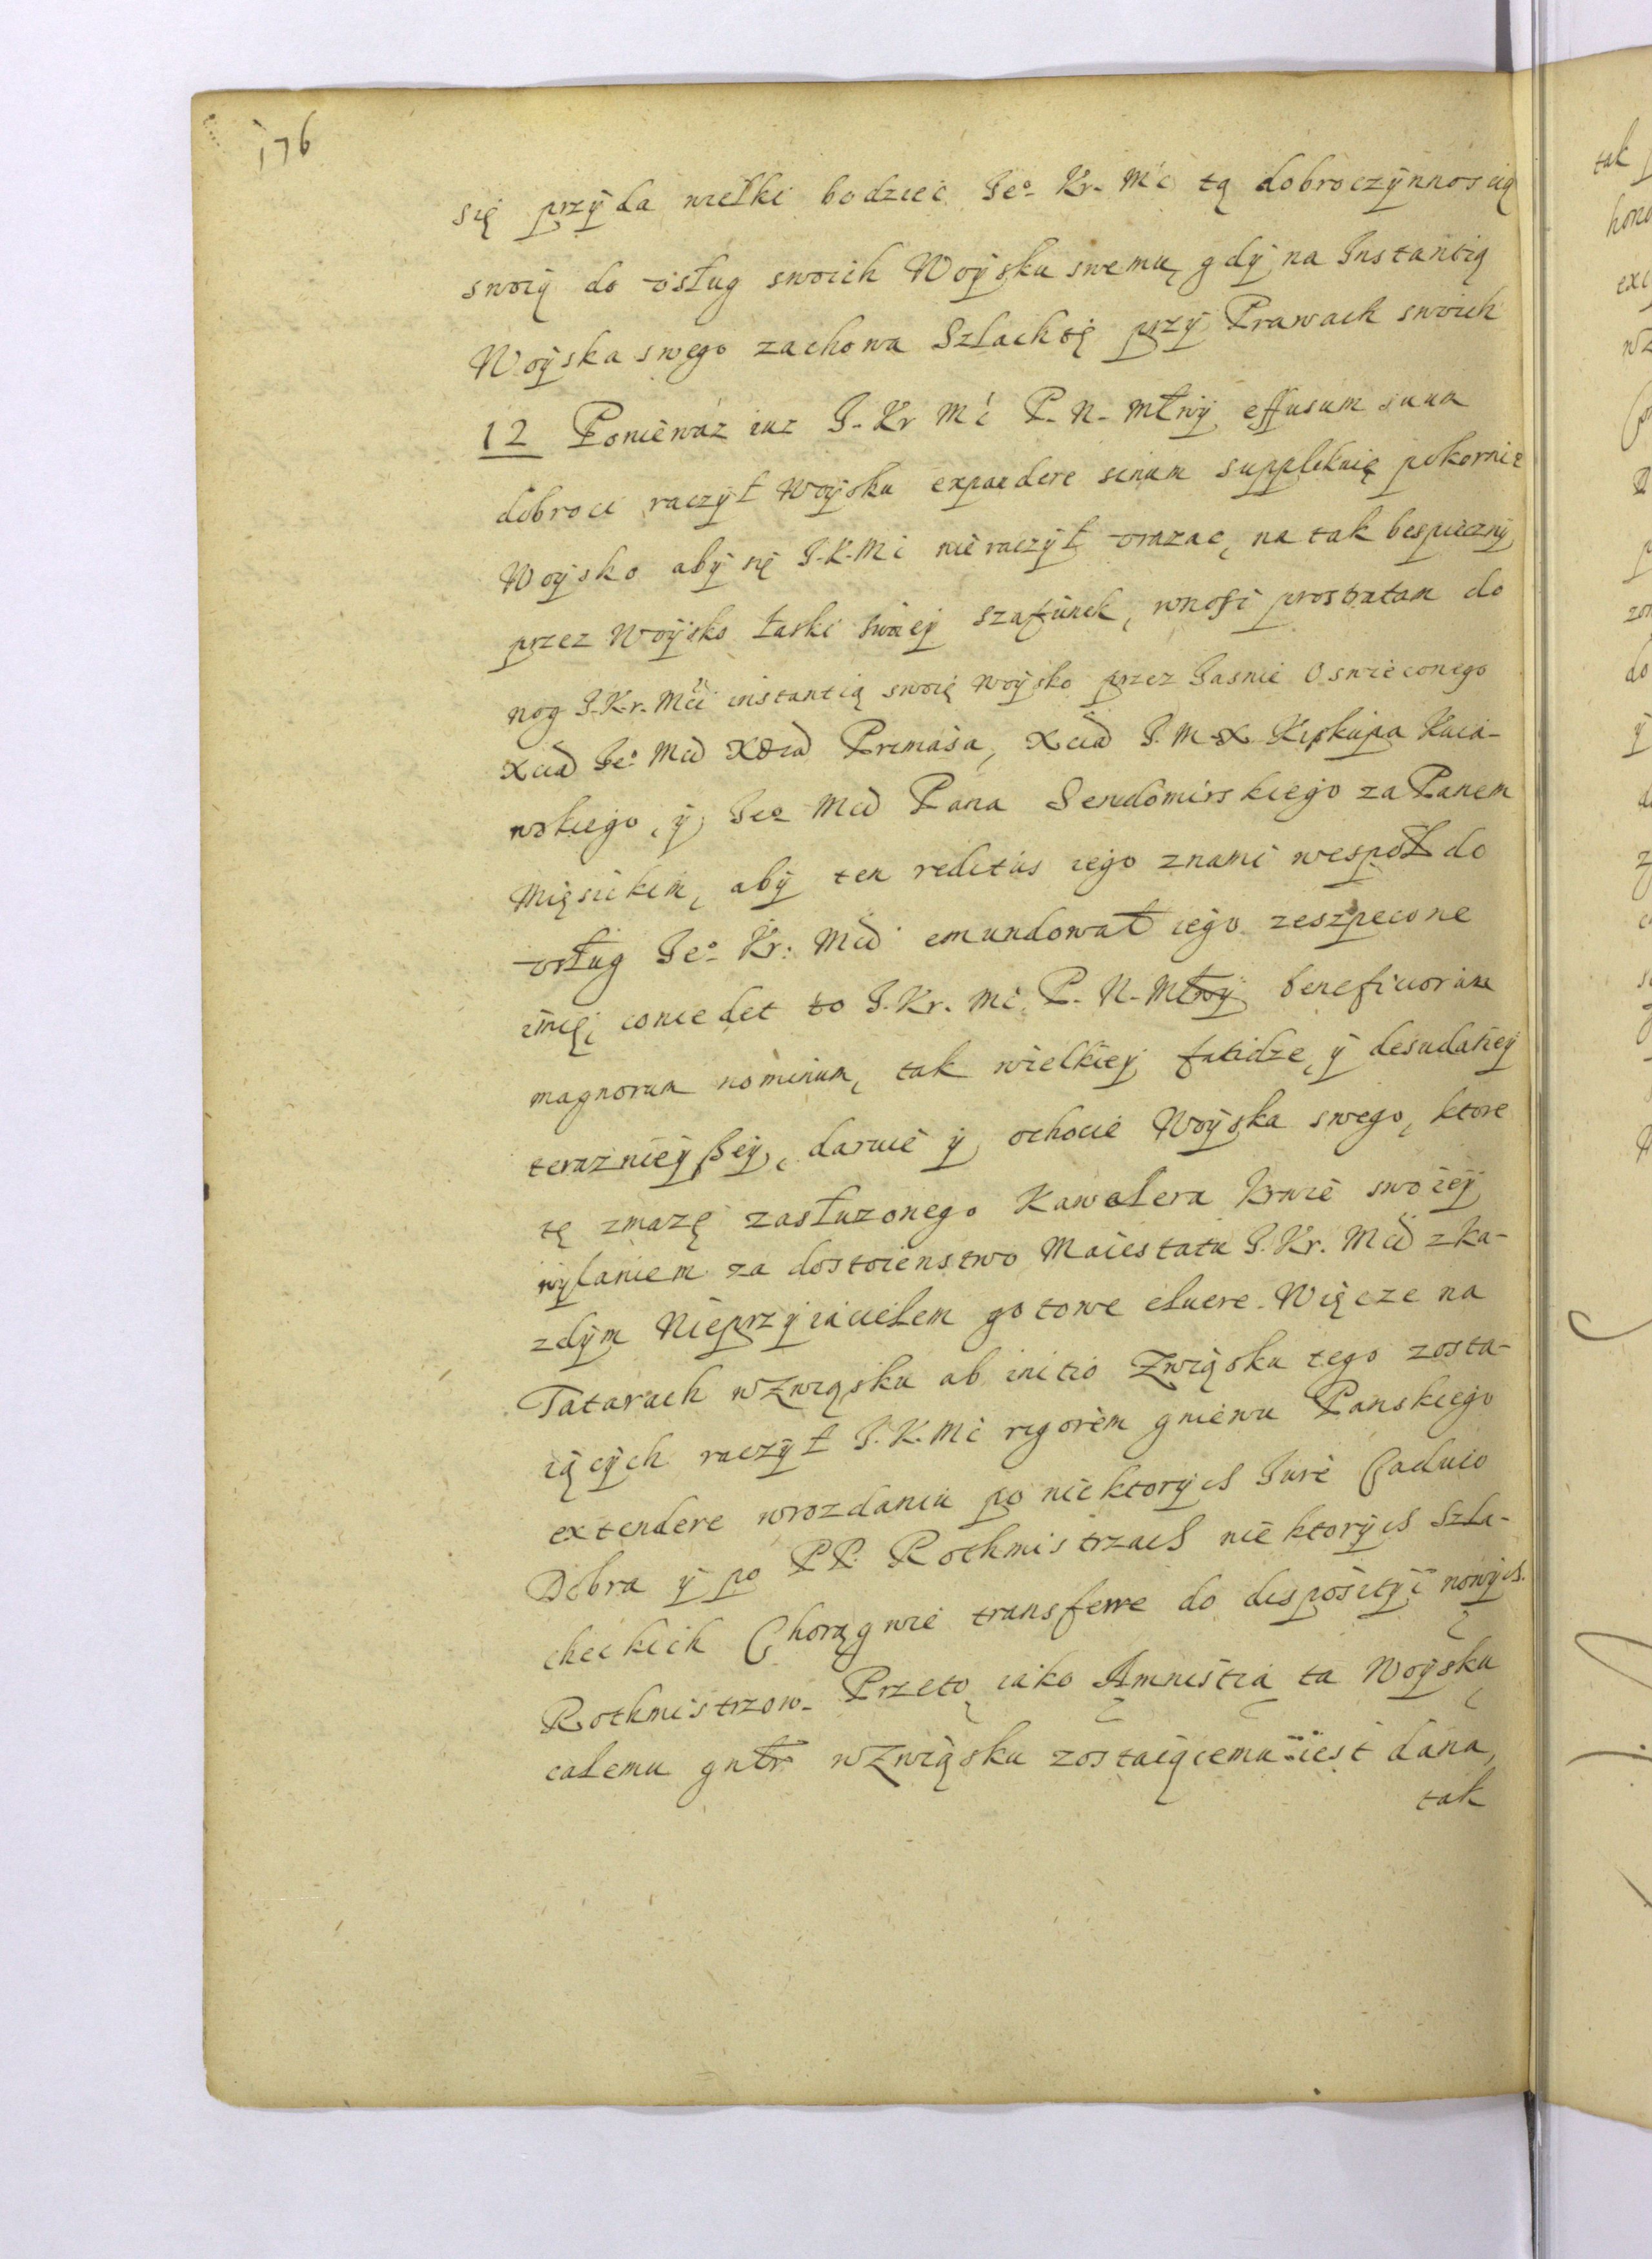 176
się przÿda wielki bodziec Jeo. Kr. Mć tą dobroczÿnnoscią
swoią do vsług swoich Woÿsku swemu, gdÿ na Instantią
Woÿska swego zachowa Szlachtę przÿ Prawach swoich
12 Poniewaz iuz J. Kr Mć P. N. Młwÿ effusum suum
dobroci raczÿł Woÿsku expandere sinum supplikuię pokornie
Woÿsko abÿ się J.K.Mć nie raczÿł vrazac, na tak bespiecznÿ
przez Woÿsko łaski swoieÿ szafunek, wnosi prostratam do
nog J.Kr.Mći instantią swoię Woÿsko przez Jasnie Oswieconego
Xcia Jeo Mci Xdza Primasa, Xcia J.M.X. Biskupa Kuia-
wskiego, ÿ Jeo Mci Pana Sendomirskiego za Panem
Mięsickim, abÿ ten reditus iego znami wespoł do
vsług Jeo Kr. Mci emundował iego zeszpecone
imię, concedet to J.Kr. Mć P. N. Młwÿ beneficiorum
magnorum nominum, tak wielkieÿ fatidze, ÿ desudatieÿ
teraznieÿßeÿ, daruie ÿ ochocie Woÿska swego, ktore
tę zmazę zasłuzonego Kawalera Krwie swoieÿ
wÿlaniem za dostoienstwo Maiestatu J. Kr. Mci zka-
zdÿm Nieprzÿiacielem gotowe eluere. Więcze na
Tatarach wZwiąsku ab initio Zwiąsku tego zosta-
iącÿch raczÿł J.K.Mć rigorem gniewu Panskiego
extendere wrozdaniu po niektorÿch Jure Caduco
Dobra ÿ po PP. Rothmistrzach niektorÿch Szla-
checkich Chorągwie transferre do disposityi nowÿch
Rothmistrzow. Przeto iako Amnistia ta Woÿsku
całemu gnłr wZwiąsku zostaiącemu iest dana,
tak